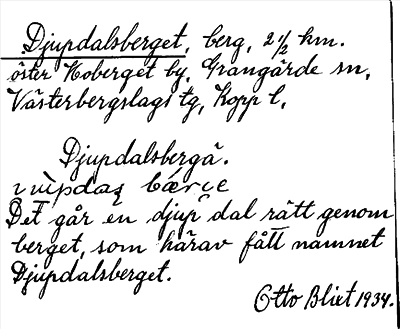 Djupdalsberget, berg, 2½ km.
öster Hoberget by. Grangärde sn,
Västerbergslags tg, Kopp l,
Djupdalsbergä.
Det går en djup dal rätt genom
berget, som härav fått namnet
Djupdalsberget.
Otto Blixt 1934.